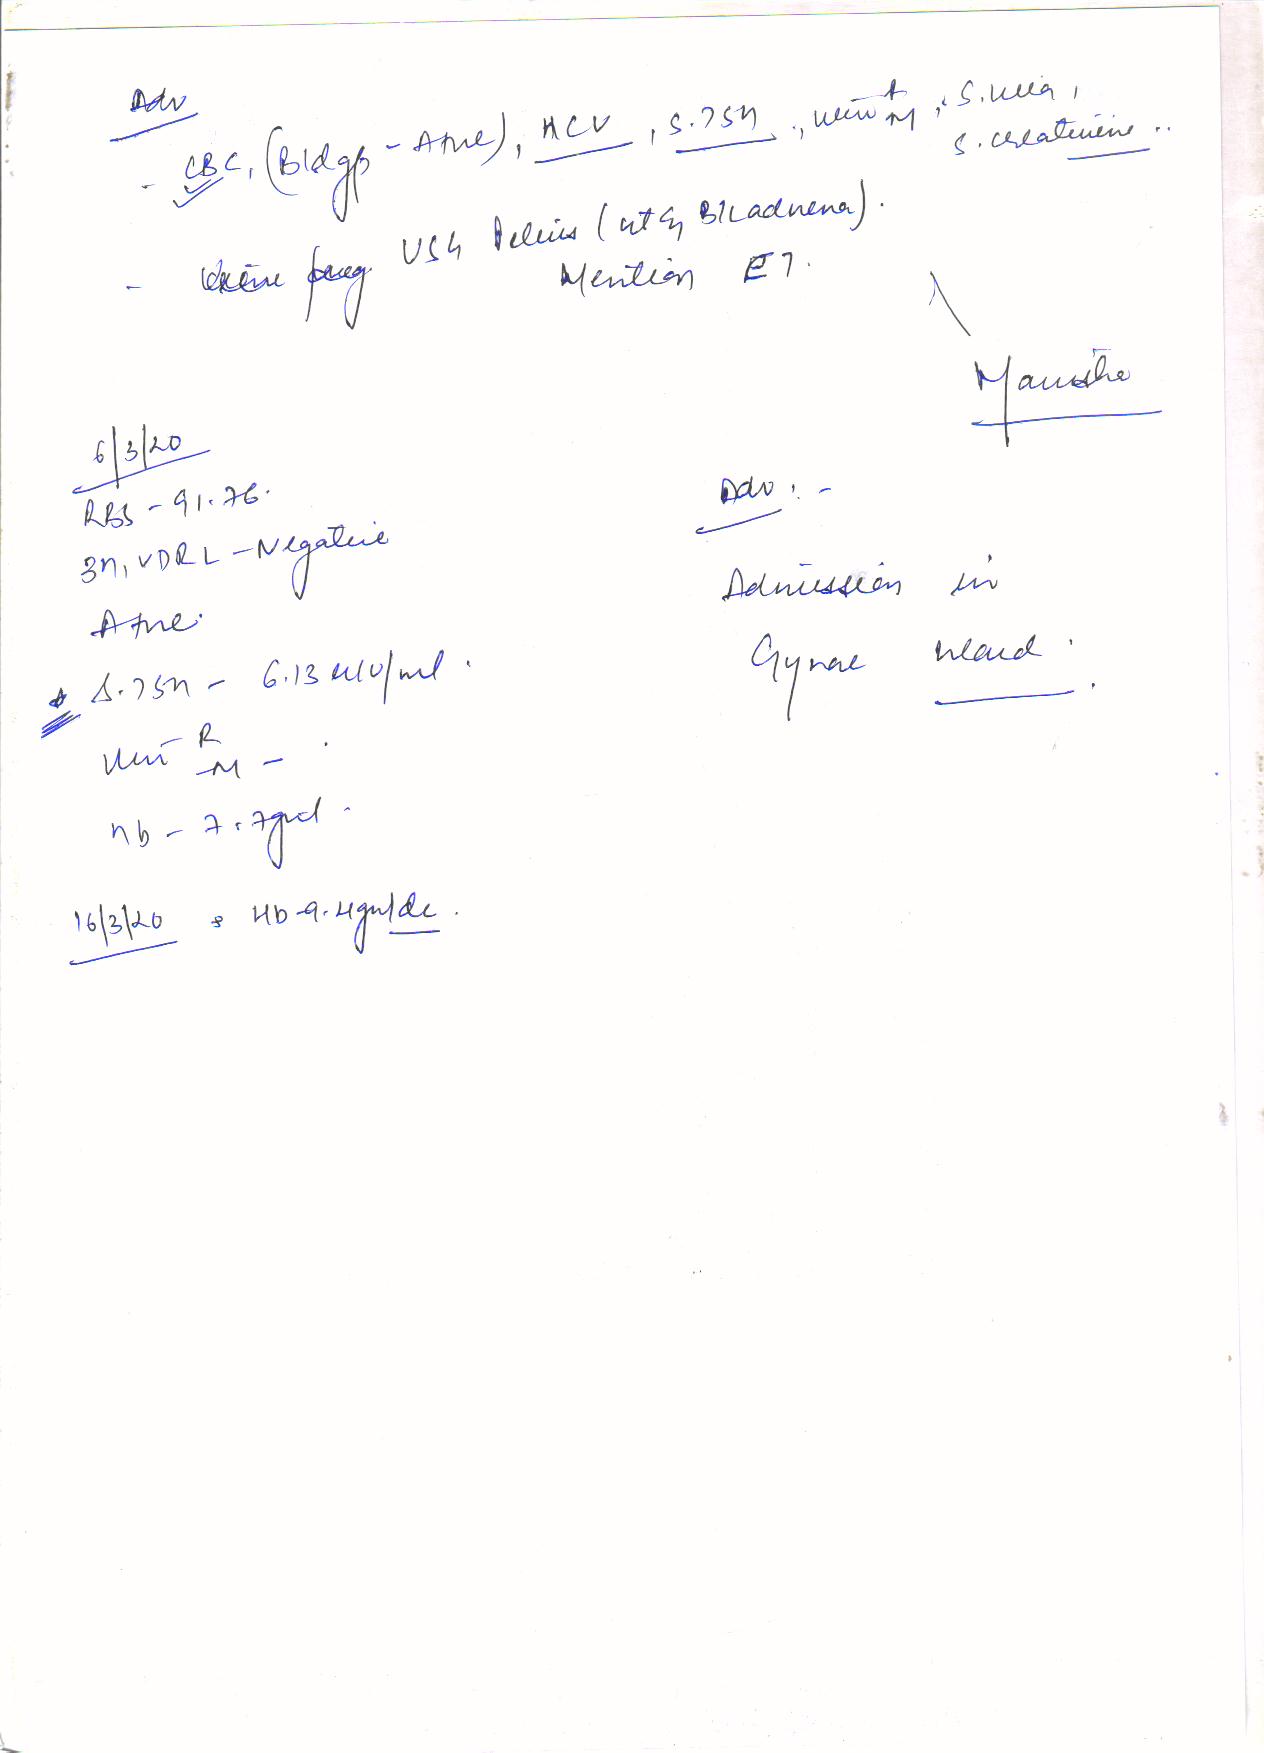 Adv
- CBC, (Bldgp - A+ve), HCV, S.TSH, urine R/M, S.urea,
S. creatinine ..
- urine preg USG Pelvis (ut & B/L adnexa).
Mention ET.
Manisha
6/3/20
RBS - 91.76.
3H, VDRL - Negative
A+ve.
* S.TSH - 6.13 uIU/ml.
R
M -
Hb - 7.7gm/dl.
16/3/20 Hb-9.4gm/dl.
Adv: -
Admission in
Gynae ward.